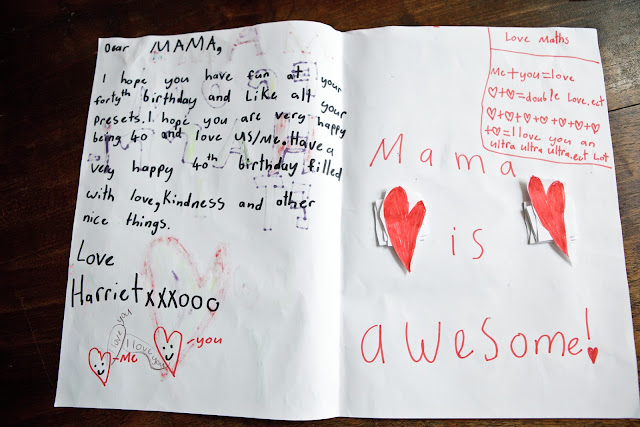 Dear MAMA,
I hope you have fun at your
fortyth birthday and Like all your
presets. I hope you are very happy
being 40 and love US/Me. Have a
very happy 40th birthday filled
with love, Kindness and other
nice things.
Love
Harriet xxxooo
love you
I love you
-Me
-you
Love Maths
Me+you=love
♡+♡=double Love.ect
♡+♡+♡+♡+♡+♡+♡
+♡=I love you an
ultra ultra ultra.ect Lot
Mama
is
awesome!